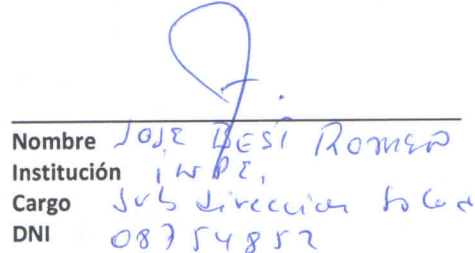 Nombre JOSE BESI ROMERO
Institución INPE,
Cargo Sub direccion
DNI 08754852